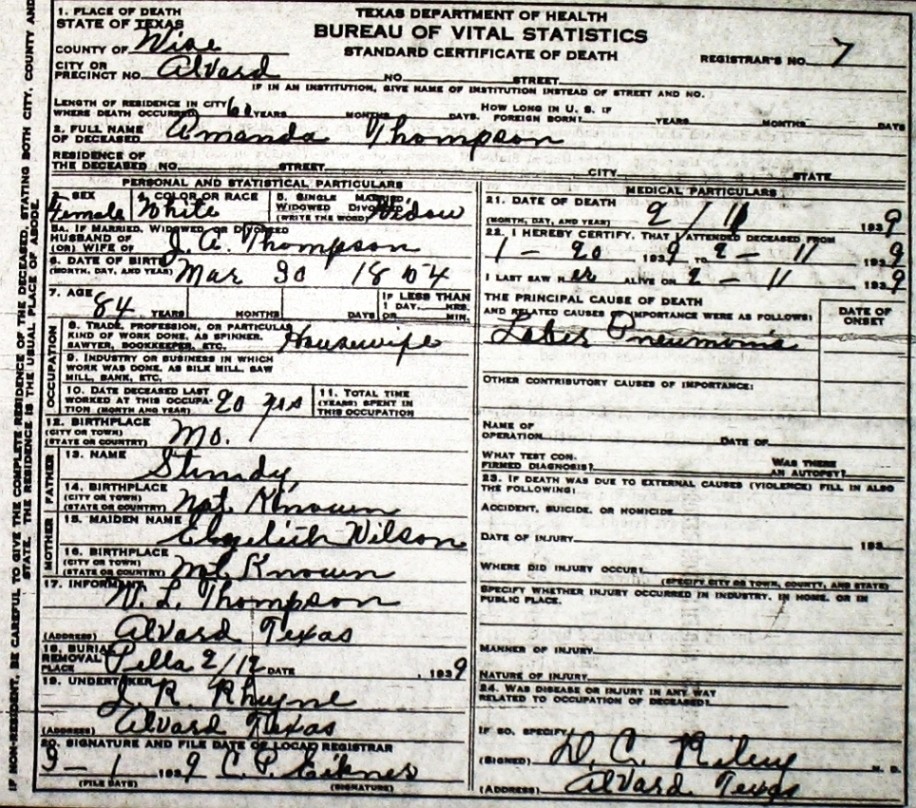 1. PLACE OF DEATH
STATE OF TEXAS
COUNTY OF Wise
CITY OR PRECINCT NO. Alvard
TEXAS DEPARTMENT OF HEALTH
BUREAU OF VITAL STATISTICS
STANDARD CERTIFICATE OF DEATH
REGISTRAR'S NO. 7
NO. STREET
IF IN AN INSTITUTION, GIVE NAME OF INSTITUTION INSTEAD OF STREET AND NO.
LENGTH OF RESIDENCE IN CITY WHERE DEATH OCCURRED 60 YEARS MONTHS DAYS. HOW LONG IN U. S. IF FOREIGN BORN? YEARS MONTHS DAYS
2. FULL NAME OF DECEASED Amanda Thompson
RESIDENCE OF THE DECEASED NO. STREET CITY STATE
PERSONAL AND STATISTICAL PARTICULARS
3. SEX Female
4. COLOR OR RACE White
5. SINGLE MARRIED, WIDOWED DIVORCED (WRITE THE WORD) Widow
5A. IF MARRIED, WIDOWED OR DIVORCED
HUSBAND OF (OR) WIFE OF J. A. Thompson
6. DATE OF BIRTH (MONTH, DAY, AND YEAR) Mar 30 1854
7. AGE 84 YEARS MONTHS DAYS IF LESS THAN 1 DAY, HRS. OR MIN.
OCCUPATION
8. TRADE, PROFESSION, OR PARTICULAR
KIND OF WORK DONE, AS SPINNER,
SAWYER, BOOKKEEPER, ETC. Housewife
9. INDUSTRY OR BUSINESS IN WHICH
WORK WAS DONE, AS SILK MILL, SAW
MILL, BANK, ETC.
10. DATE DECEASED LAST
WORKED AT THIS OCCUPATION (MONTH AND YEAR) 20 yrs
11. TOTAL TIME
(YEARS) SPENT IN
THIS OCCUPATION
12. BIRTHPLACE
(CITY OR TOWN)
(STATE OR COUNTRY) Mo.
FATHER
13. NAME
14. BIRTHPLACE
(CITY OR TOWN)
(STATE OR COUNTRY) Not Known
MOTHER
15. MAIDEN NAME Wilson
16. BIRTHPLACE
(CITY OR TOWN)
(STATE OR COUNTRY) Not Known
17. INFORMANT
W. L. Thompson
(ADDRESS) Alvard Texas
18. BURIAL
REMOVAL
PLACE Pella 2/12 DATE , 1939
19. UNDERTAKER
J. R. Rhyne
(ADDRESS) Alvard Texas
20. SIGNATURE AND FILE DATE OF LOCAL REGISTRAR
3 - 1 1939 C. P.
(FILE DATE) (SIGNATURE)
MEDICAL PARTICULARS
21. DATE OF DEATH
(MONTH, DAY, AND YEAR) 2 / 11 1939
22. I HEREBY CERTIFY, THAT I ATTENDED DECEASED FROM
1 - 20 1939 TO 2 - 11 9
I LAST SAW HER ALIVE ON 2 - 11 1939
THE PRINCIPAL CAUSE OF DEATH
AND RELATED CAUSES OF IMPORTANCE WERE AS FOLLOWS:
DATE OF ONSET
Pneumonia
OTHER CONTRIBUTORY CAUSES OF IMPORTANCE:
NAME OF OPERATION DATE OF
WHAT TEST CONFIRMED DIAGNOSIS? WAS THERE AN AUTOPSY?
23. IF DEATH WAS DUE TO EXTERNAL CAUSES (VIOLENCE) FILL IN ALSO
THE FOLLOWING:
ACCIDENT, SUICIDE, OR HOMICIDE
DATE OF INJURY 193
WHERE DID INJURY OCCUR?
(SPECIFY CITY OR TOWN, COUNTY, AND STATE)
SPECIFY WHETHER INJURY OCCURRED IN INDUSTRY, IN HOME, OR IN
PUBLIC PLACE.
MANNER OF INJURY
NATURE OF INJURY
24. WAS DISEASE OR INJURY IN ANY WAY
RELATED TO OCCUPATION OF DECEASED?
IF SO, SPECIFY
(SIGNED) D. C. Riley M. D.
(ADDRESS) Alvard Texas
IF NON-RESIDENT, BE CAREFUL TO GIVE THE COMPLETE RESIDENCE OF THE DECEASED, STATING BOTH CITY, COUNTY AND
STATE. THE RESIDENCE IS THE USUAL PLACE OF ABODE.